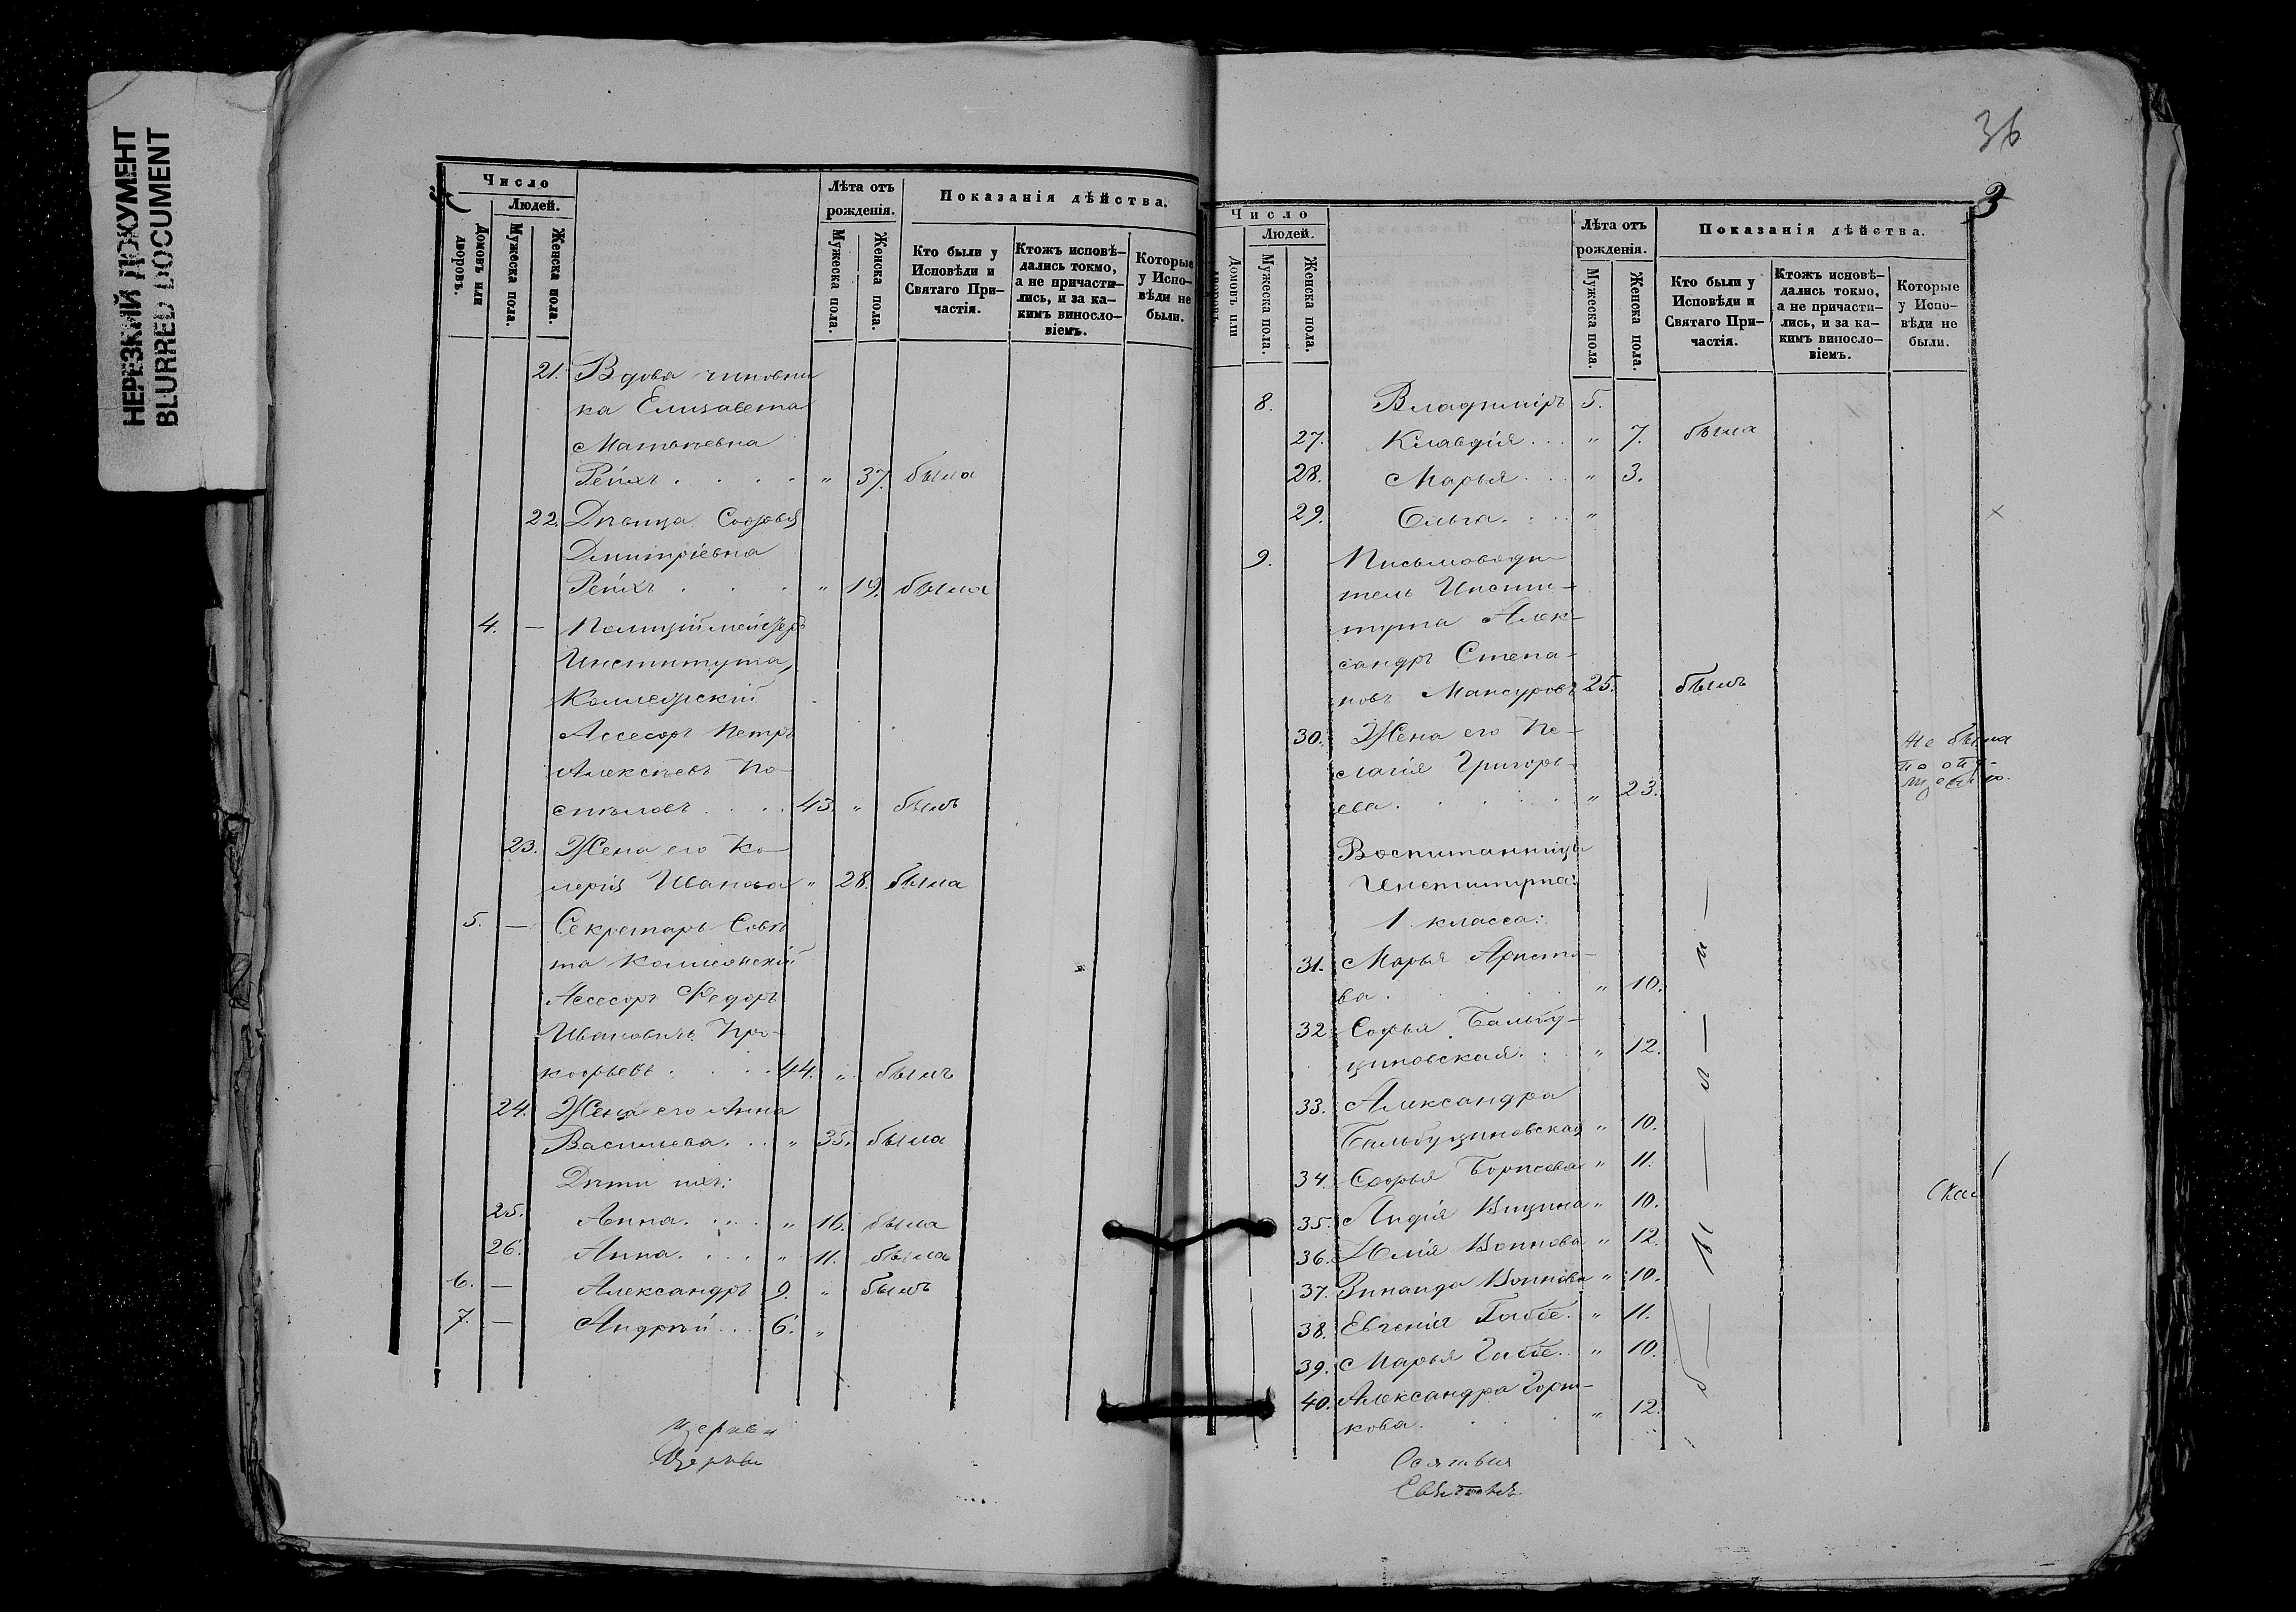 НЕРЕЗКИЙ ДОКУМЕНТ
BLURRED DOCUMENT
Число
Людей.
Домовъ или дворовъ.
Мужеска пола.
Женска пола.
Лѣта отъ рожденія.
Мужеска пола.
Женска пола.
Показанія дѣйства.
Кто были у Исповѣди и Святаго Причастія.
Ктожъ исповѣдались токмо, а не причастились, и за какимъ винословіемъ.
Которые у Исповѣди не были.
21. Вдова чиновни
ка Елизавета
Матвѣевна
Рейхъ . . . . " 37. была
22. Дѣвица Софья
Дмитріевна
Рейхъ . . . " 19. была
4. — Полиціймейстеръ
Института,
Коллежскій
Ассесоръ Петръ
Алексѣевъ По-
спѣловъ . . . 43. " былъ
23. Жена его Ка-
лерія Иванова " 28. была
5. — Секретарь Совѣ
та Коллежскій
Ассесоръ Федоръ
Ивановичъ Про-
кофьевъ . . . . 44. " былъ
24. Жена его Анна
Васильева . . " 35. была
Дѣти ихъ:
25. Анна . . . . " 16. была
26. Анна . . . . " 11. была
6. — Александръ 9. " былъ
7. — Андрей . . . 6. "
Церкви
Церкви
36
3
Число
Людей.
Домовъ или дворовъ.
Мужеска пола.
Женска пола.
Лѣта отъ рожденія.
Мужеска пола.
Женска пола.
Показанія дѣйства.
Кто были у Исповѣди и Святаго Причастія.
Ктожъ исповѣдались токмо, а не причастились, и за какимъ винословіемъ.
Которые у Исповѣди не были.
8. Владиміръ 5.
27. Клавдія . . . " 7. была
28. Марья . . . " 3.
29. Ольга . . . . "
9. Письмоводи-
тель Инсти-
тута Алек-
сандръ Степа-
новъ Мансуровъ 25. былъ
30. Жена его Пе-
лагія Григорь-
ева . . . . . " 23. не была
по
Воспитанницы
Института:
1 класса:
31. Марья Аристо-
ва . " 10.
32. Софья Бальбу-
циновская . . " 12.
33. Александра
Бальбуциновская " 10.
34. Софья Борисова " 11.
35. Лидія Вицина " 10.
36. Юлія Воинова " 12.
37. Зинаида Воинова " 10.
38. Евгенія Габбе . " 11.
39. Марья Габбе . . " 10.
40. Александра Горш-
кова . " 12.
б — ы — л — и —